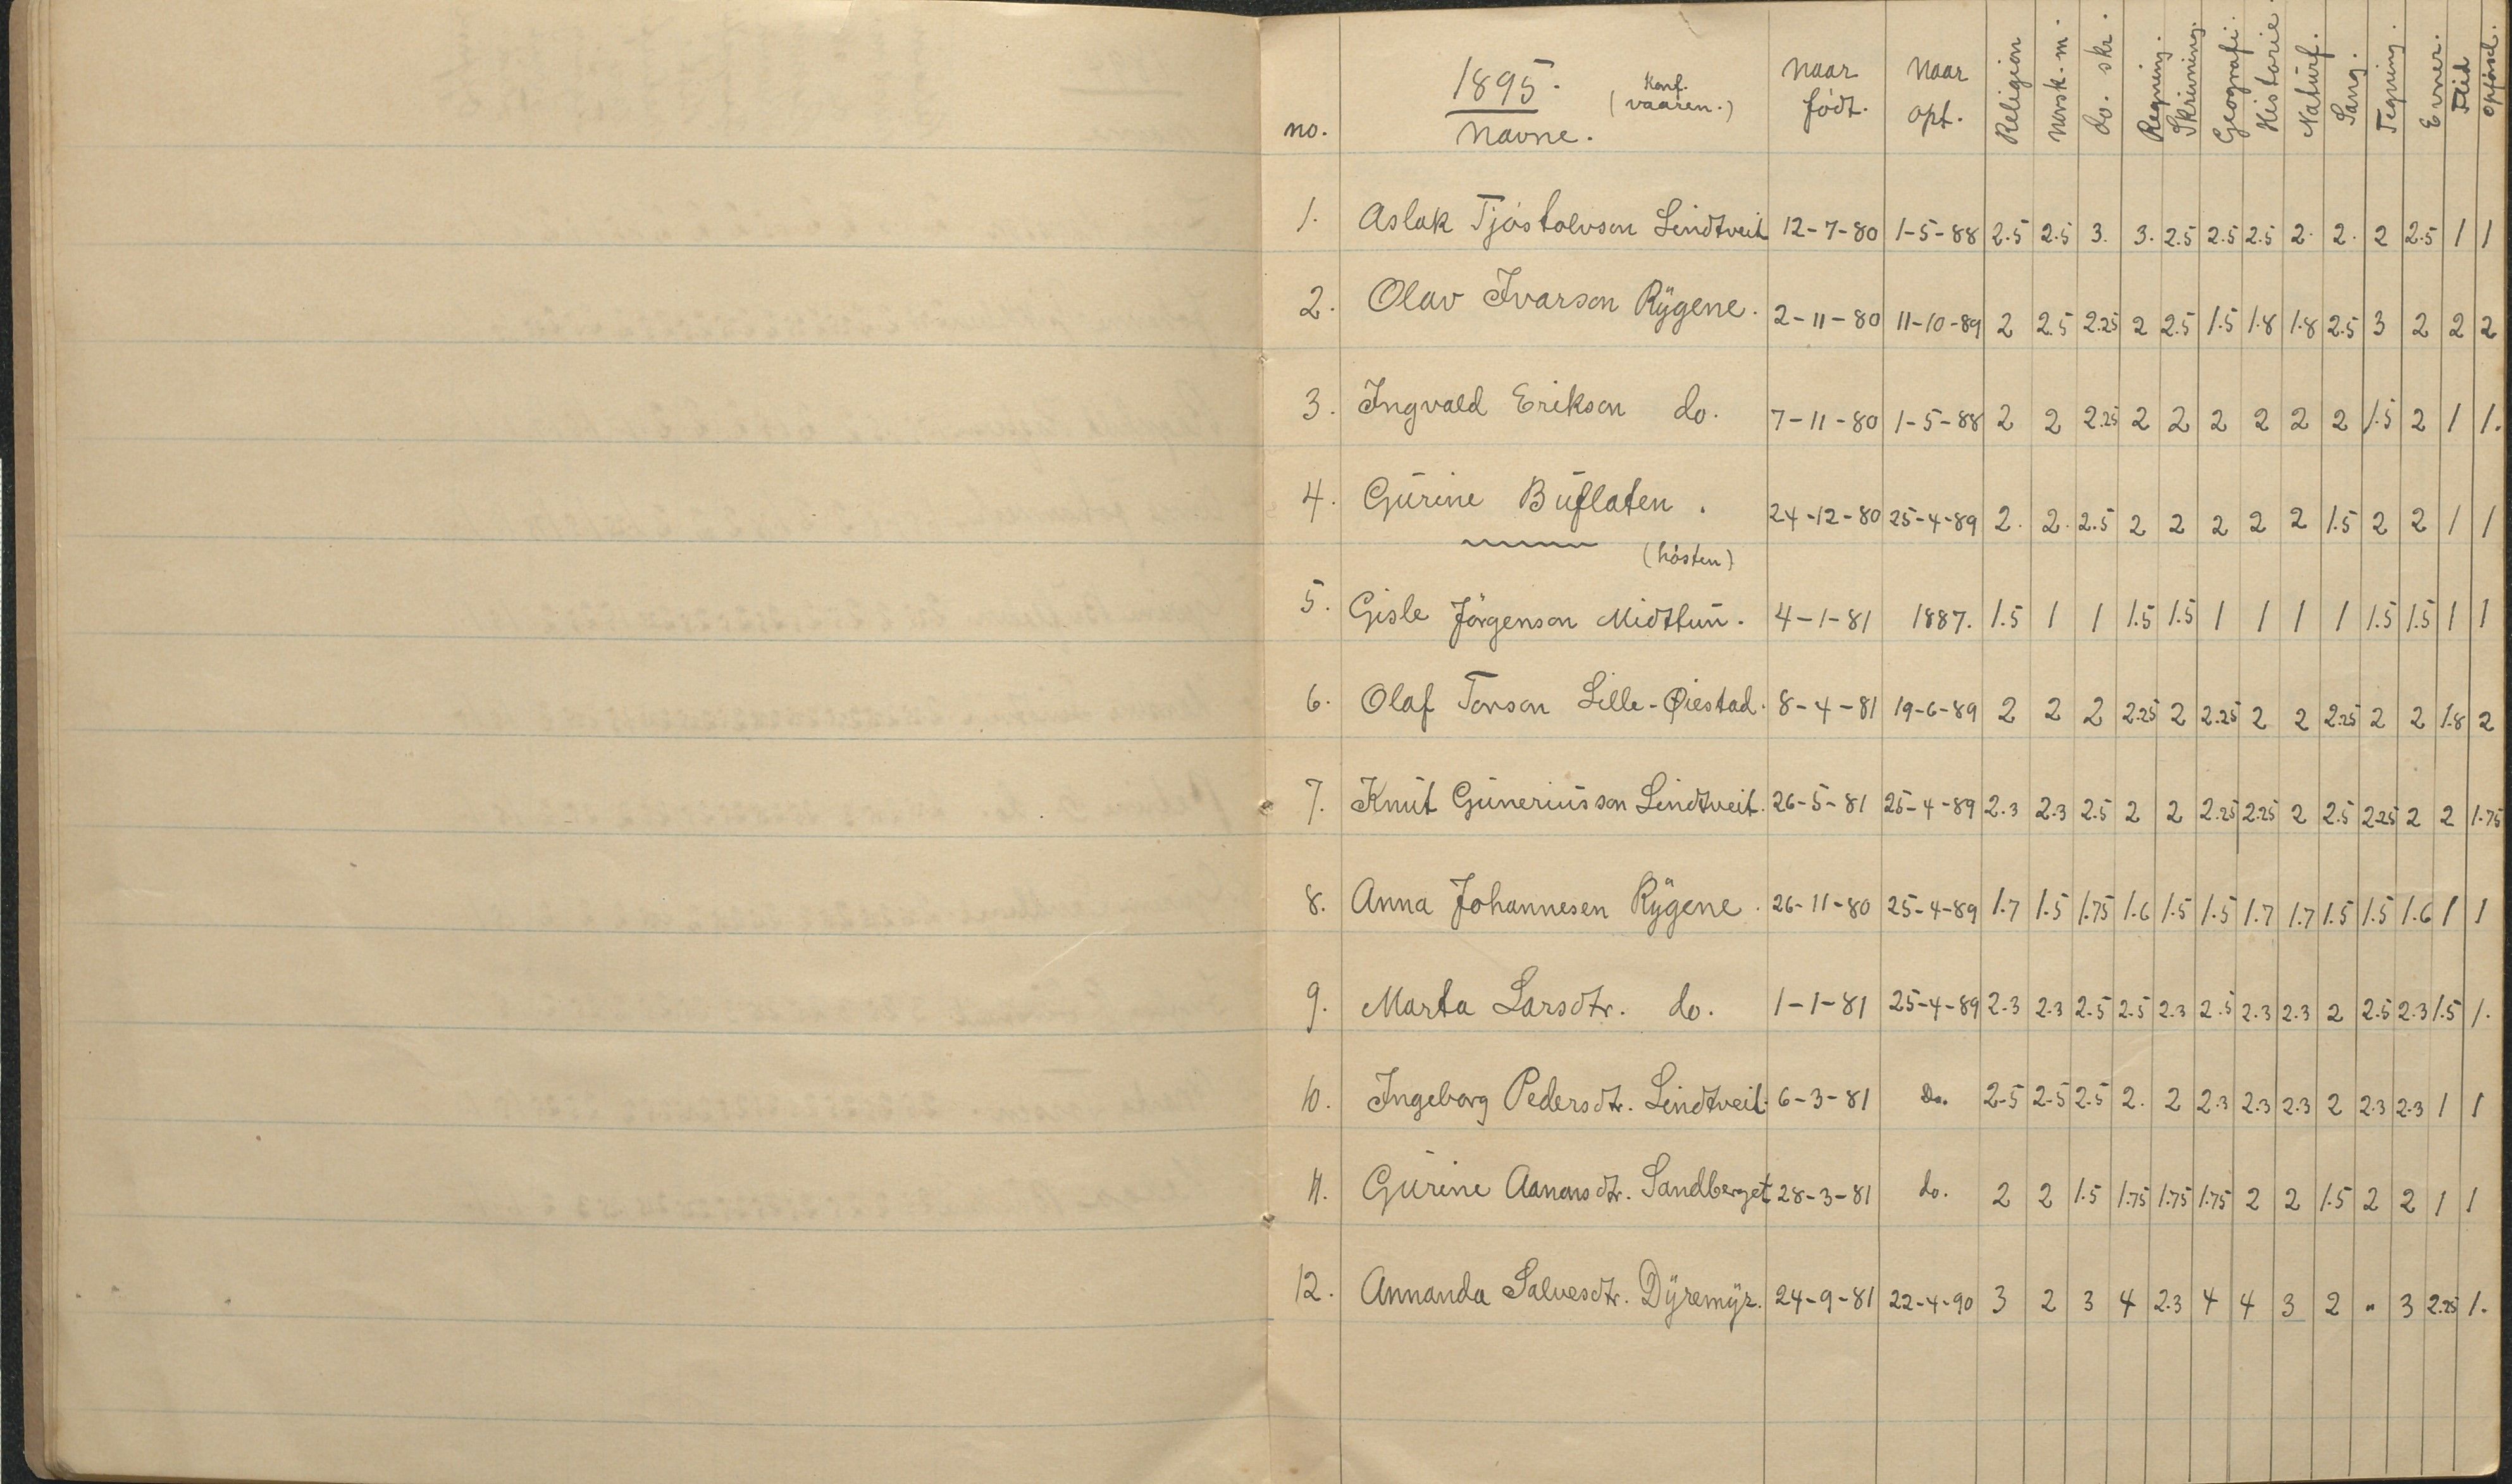 no. 1895. Konf. (vaaren.) Navne. Naar født. Naar opt. Religion Norsk. m. do. skr. Regning. Skrivning. Geografi. Historie. Naturf. Sang. Tegning. Evner. Flid Opførsel.
1. Aslak Tjøstolvson Lindtveit 12-7-80 1-5-88 2.5 2.5 3. 3. 2.5 2.5 2.5 2. 2. 2 2.5 1 1
2. Olav Ivarson Rygene. 2-11-80 11-10-89 2 2.5 2.25 2 2.5 1.5 1.8 1.8 2.5 3 2 2 2
3. Ingvald Erikson do. 7-11-80 1-5-88 2 2 2.25 2 2 2 2 2 2 1.5 2 1 1.
4. Gurine Buflaten. 24-12-80 25-4-89 2. 2. 2.5 2 2 2 2 2 1.5 2 2 1 1
(høsten)
5. Gisle Jörgenson Midttun. 4-1-81 1887. 1.5 1 1 1.5 1.5 1 1 1 1 1.5 1.5 1 1
6. Olaf Torson Lille-Øiestad. 8-4-81 19-6-89 2 2 2 2.25 2 2.25 2 2 2.25 2 2 1.8 2
7. Knut Guneriusson Lindtveit. 26-5-81 25-4-89 2.3 2.3 2.5 2 2 2.25 2.25 2 2.5 2.25 2 2 1.75
8. Anna Johannesen Rygene. 26-11-80 25-4-89 1.7 1.5 1.75 1.6 1.5 1.5 1.7 1.7 1.5 1.5 1.6 1 1
9. Marta Larsdtr. do. 1-1-81 25-4-89 2.3 2.3 2.5 2.5 2.3 2.5 2.3 2.3 2 2.5 2.3 1.5 1.
10. Ingeborg Pedersdtr. Lindtveit. 6-3-81 Do. 2-5 2-5 2.5 2. 2 2.3 2.3 2.3 2 2.3 2.3 1 1
11. Gurine Aanonsdtr. Sandberget 28-3-81 do. 2 2 1.5 1.75 1.75 1.75 2 2 1.5 2 2 1 1
12. Annanda Salvesdtr. Dyremyr. 24-9-81 22-4-90 3 2 3 4 2.3 4 4 3 2 " 3 2.25 1.